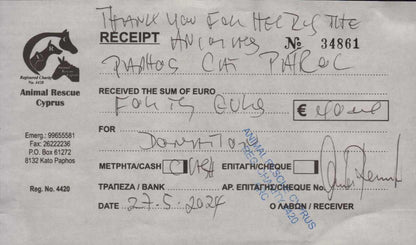 THANK YOU FOR HELPING THE
RECEIPT ANIMALS № 34861
PAPHOS CAT PATROL
Registered Charity
Animal Rescue
Cyprus
RECEIVED THE SUM OF EURO
FORTY EURO €
Emerg.: 99655581
Fax: 26222236
P.O. Box 61272
8132 Kato Paphos
FOR
DONATION
ΜΕΤΡΗΤΑ/CASH CASH ΕΠΙΤΑΓΗ/CHEQUE
ANIMAL RESCUE CYPRUS
REG. CHARITY 4420
Reg. No. 4420
ΤΡΑΠΕΖΑ / BANK ΑΡ. ΕΠΙΤΑΓΗΣ/CHEQUE No.
DATE 27-5-2024 Ο ΛΑΒΩΝ / RECEIVER